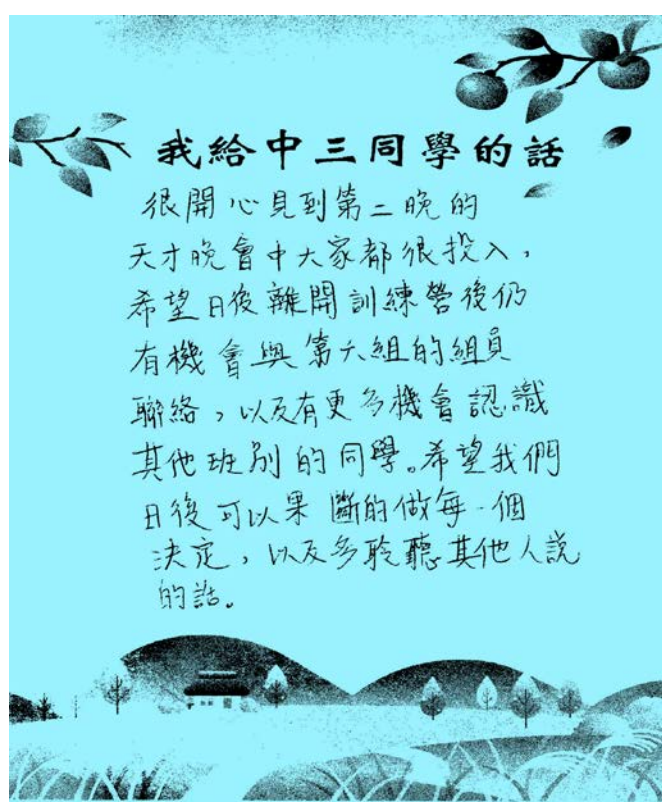 我給中三同學的話
很開心見到第二晚的
天才晚會中大家都很投入，
希望日後離開訓練營後仍
有機會與第六組的組員
聯絡，以及有更多機會認識
其他班別的同學。希望我們
日後可以果斷的做每一個
決定，以及多聆聽其他人說
的話。